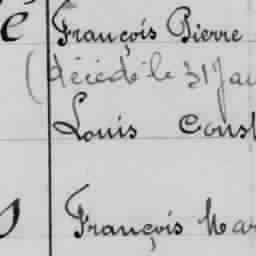 é François Pierre
(décédé le 31 Jan
Louis Const
François Mar